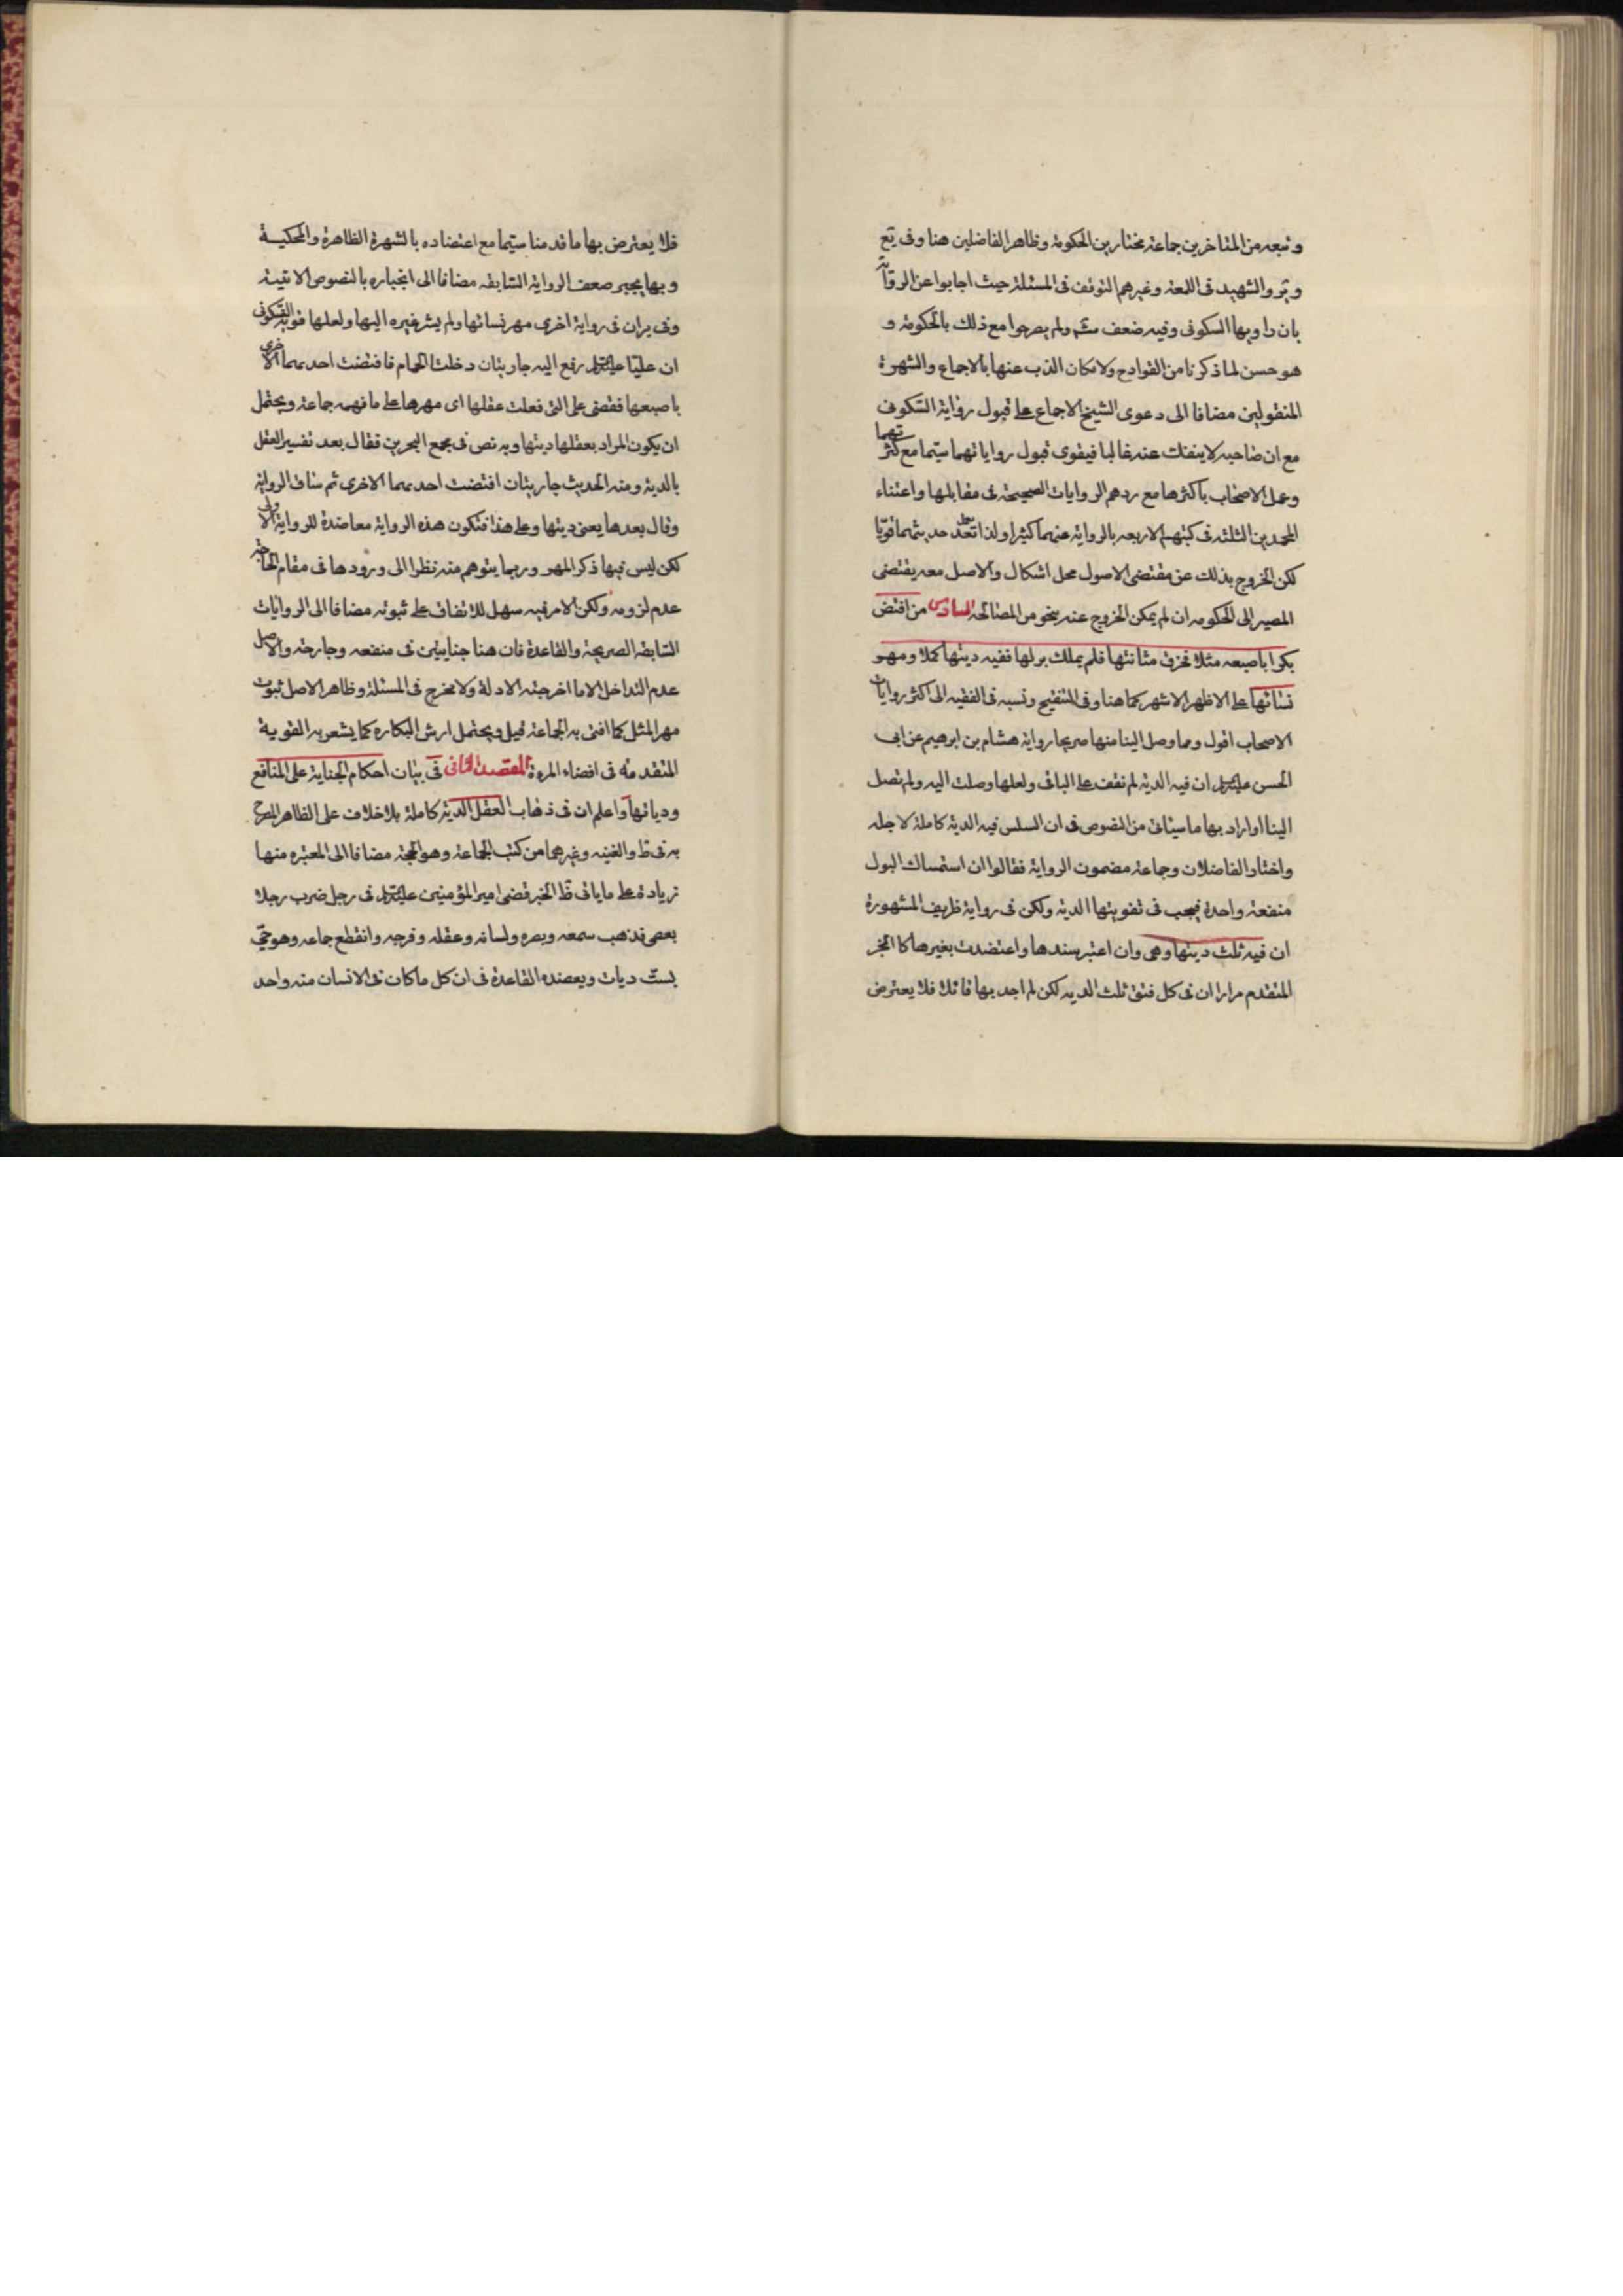 وتبعه من المتاخرين جماعة مختارين الحكومة وظاهر الفاضلين هنا وفى يع
وير والشهيد فى اللمعة وغيرهم التوقف فى المسئلة حيث اجابوا عن الرواية
بان راويها السكونى وفيه ضعف ولم يصرحوا مع ذلك بالحكومة و
هو حسن لما ذكرنا من القوادح ولامكان الذب عنها بالاجماع والشهرة
المنقولين مضافا الى دعوى الشيخ الاجماع على قبول رواية السكونى
مع ان صاحبه لا ينفك عنه غالبا فيقوى قبول رواياتهما سيّما مع كثرتهما
وعمل الاصحاب باكثرها مع ردهم الروايات الصحيحة فى مقابلها واعتناء
المحمدين الثلثة فى كتبهم الاربعه بالرواية عنهما كثيرا ولذا يعدّ حديثهما قويّا
لكن الخروج بذلك عن مقتضى الاصول محل اشكال والاصل معه يقتضى
المصير الى الحكومه ان لم يمكن الخروج عنه بنحو من المصالحه السادس من افتض
بكرا باصبعه مثلا فخرق مثانتها فلم يملك بولها ففيه ديتها كملا ومهو
نسائها على الاظهر الاشهر كما هنا وفى التنقيح ونسبه فى الفقيه الى اكثر روايات
الاصحاب اقول ومما وصل الينا منها صريحا رواية هشام بن ابرهيم عن ابى
الحسن عليه السلام ان فيه الدية لم نقف على الباقى ولعلها وصلت اليه ولم تصل
الينا او اراد بها ما سياتى من النصوص فى ان السلس فيه الدية كاملة لاجله
واختار الفاضلان وجماعة مضمون الرواية فقالوا ان استمساك البول
منفعة واحدة فيجب فى تفويتها الدية ولكن فى رواية ظريف المشهورة
ان فيه ثلث ديتها وهى وان اعتبر سندها واعتضدت بغيرها كا الخبر
المتقدم مرارا ان فى كل فتق ثلث الديه لكن لم اجد بها قائلا فلا يعترض
فلا يعترض بها ما قدمنا سيّما مع اعتضاده بالشهرة الظاهرة والمحكيــة
وبها يجبر ضعف الرواية السّابقه مضافا الى انجباره بالنصوص الاتيـة
وفى يران فى رواية اخرى مهر نسائها ولم يشر غيره اليها ولعلها قوية السّكونى
ان عليّا عليه السلام رفع اليه جاريتان دخلتا الحمام فافتضت احديهما الاخرى
باصبعها فقضى على التى فعلت عقلها اى مهرها على ما فهمه جماعة ويحتمل
ان يكون المراد بعقلها ديتها وبه نص فى مجمع البحرين فقال بعد تفسير العقل
بالدية ومنه الحديث جاريتان افتضت احديهما الاخرى ثم ساق الرواية
وقال بعدها يعنى ديتها وعلى هذا فتكون هذه الرواية معاضدة للرواية الاولى
لكن ليس فيها ذكر المهر وربما يتوهم منه نظرا الى ورودها فى مقام الحاجة
عدم لزومه ولكن الامر فيه سهل للاتفاق على ثبوته مضافا الى الروايات
السّابقه الصريحة والقاعدة فان هنا جنايتين فى منفعه وجارحة والاصل
عدم التداخل الا ما اخرجته الادلة ولا مخرج فى المسئلة وظاهر الاصل ثبوت
مهر المثل كما افتى به الجماعة قيل ويحتمل ارش البكاره كما يشعر به القوية
المتقدمة فى افضاء المرءة المقصد الثانى فى بيان احكام الجناية على المنافع
ودياتها واعلم ان فى ذهاب العقل الدية كاملة بلا خلاف على الظاهر المصرح
به فى ط والغنيه وغيرهما من كتب الجماعة وهو الحجة مضافا الى المعتبره منها
زيادة على ما ياتى ظ الخبر قضى امير المؤمنين عليه السلام فى رجل ضرب رجلا
بعصى فذهب سمعه وبصره ولسانه وعقله وفرجه وانقطع جماعه وهو حىّ
بستّ ديات ويعضده القاعدة فى ان كل ما كان فى الانسان منه واحد